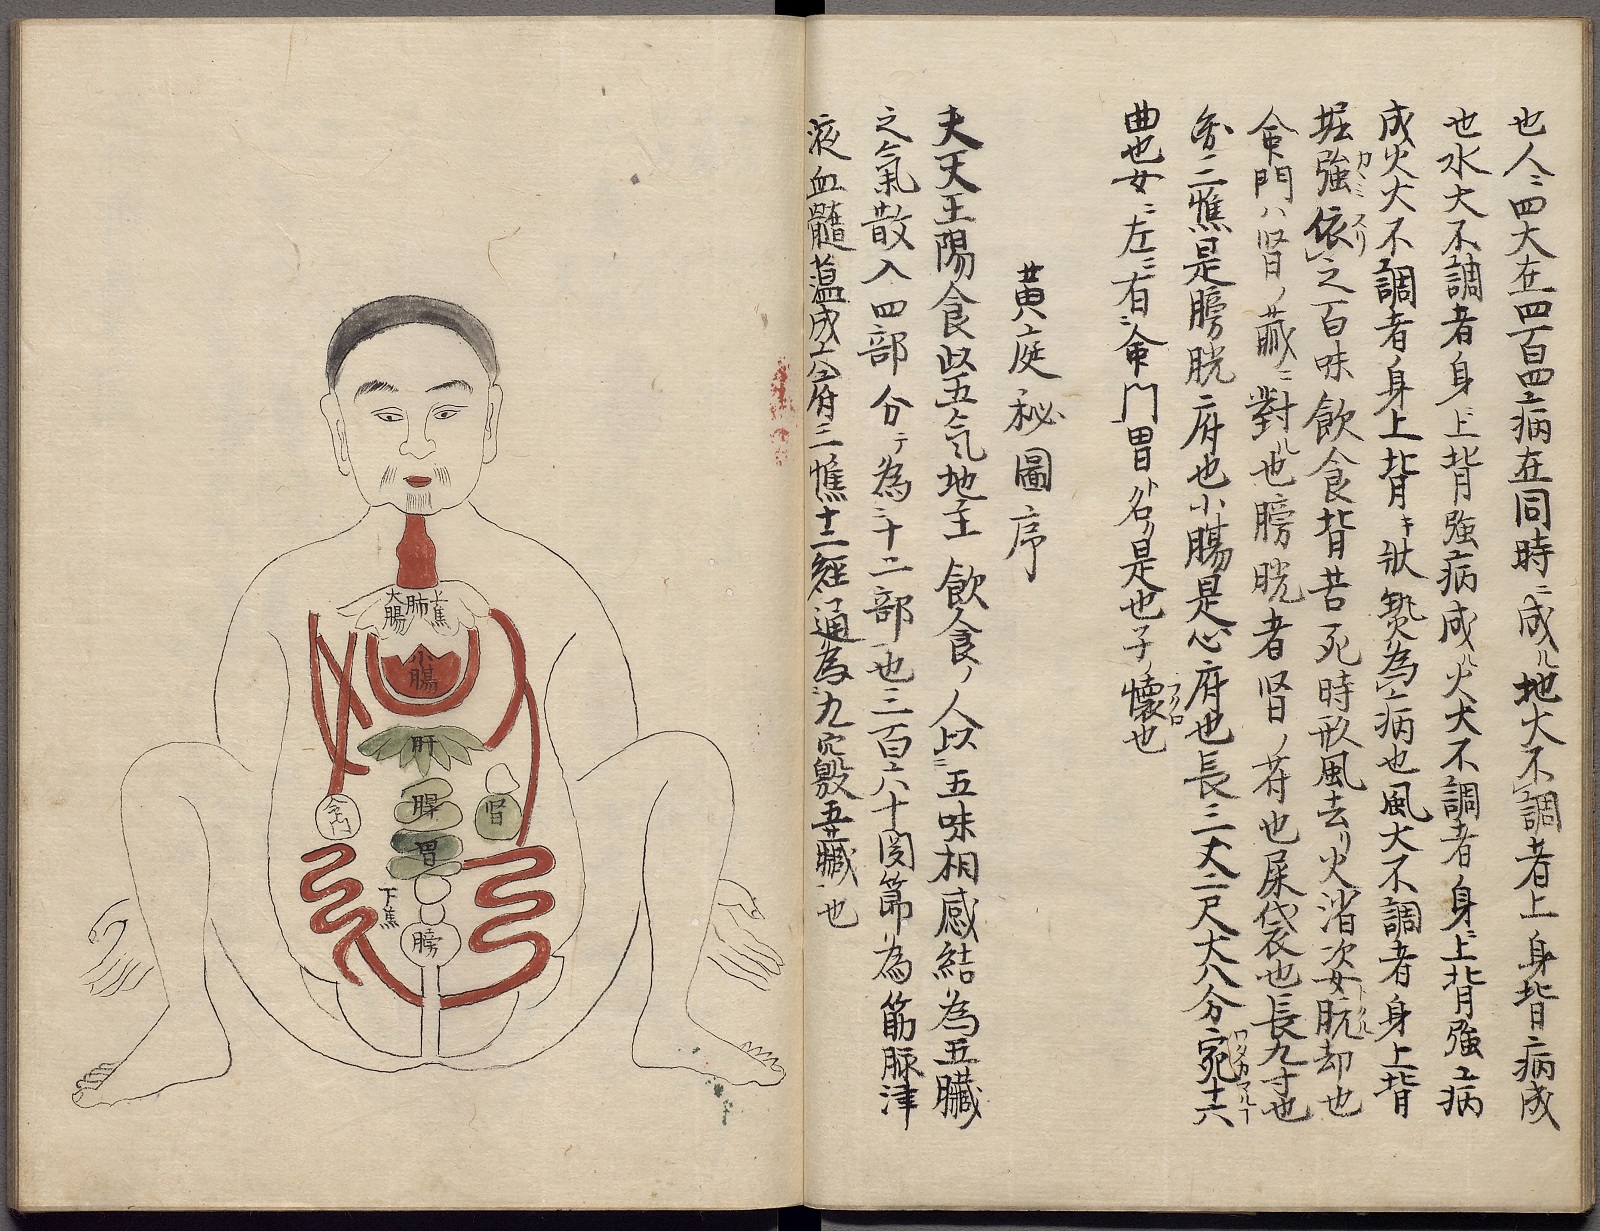 也人ニ四大在四百四病在同時ニ成ル地大不調者上身背病成
也水大不調者身上背強病成火大不調者身上背強病
成火大不調者身上背キ状為病也風大不調者身上背
強依之百味飲食背苦死時形風去リ火消次
命門ハ腎ノ藏ニ對ル也膀胱者腎ノ府也屎袋也長九寸也
三憔是膀胱府也小腸是心府也長三丈二尺大八分宛十六
曲也女ニ左ニ有命門胃ト名是也子ノ懐也
フクロ
黄庭秘圖序
夫天王陽食以五気地主飲食ノ人以ニ五味相感結為五臓
之氣散入四部分テ為三十二部也三百六十関節為筋脉津
液血髓蕰成六府三憔十二経通為九穴五臓也
大腸
肺
上焦
小腸
肝
脾
命門
腎
胃
下焦
膀